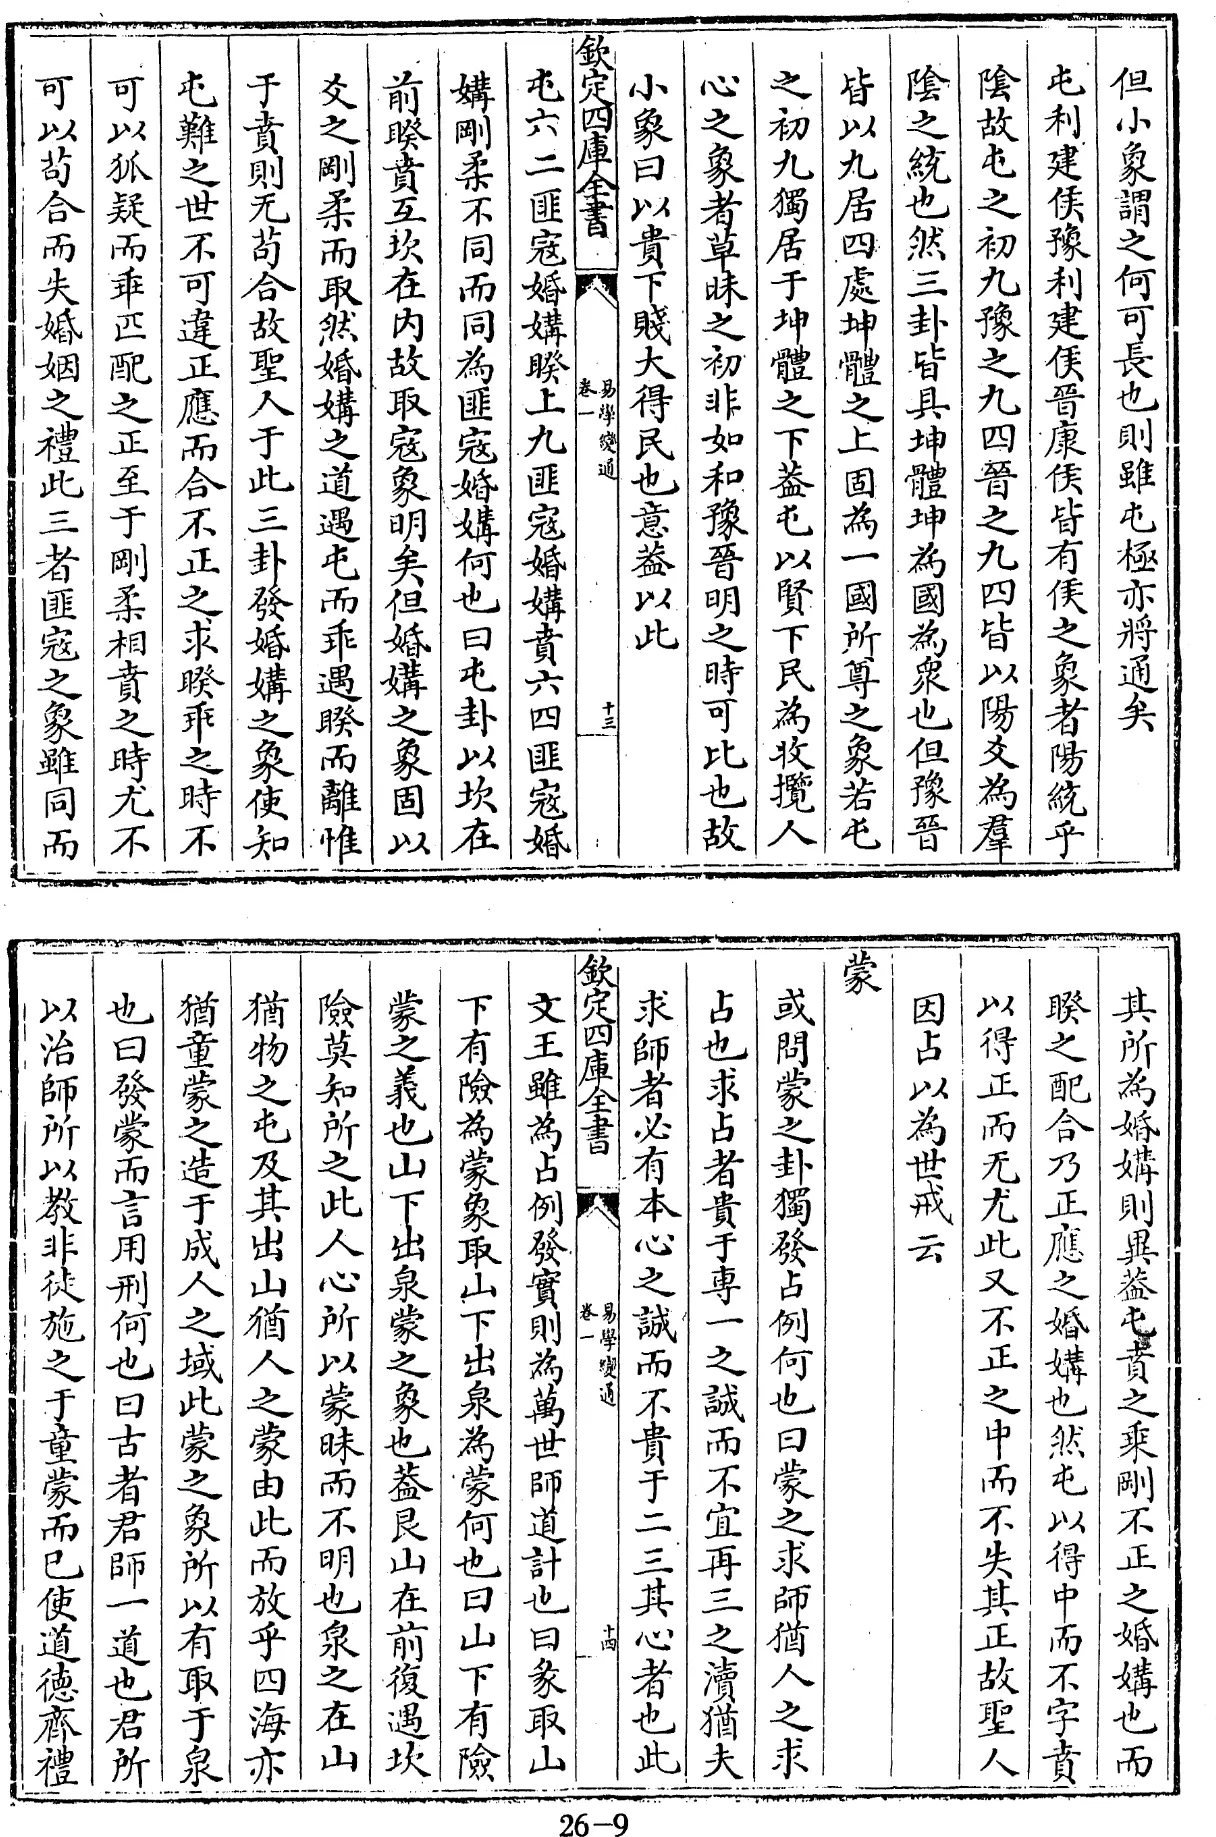 但小象謂之何可長也則雖屯極亦將通矣
屯利建侯豫利建侯晉康侯皆有侯之象者陽統乎
陰故屯之初九豫之九四晉之九四皆以陽爻為羣
陰之統也然三卦皆具坤體坤為國為衆也但豫晉
皆以九居四處坤體之上固為一國所尊之象若屯
之初九獨居于坤體之下葢屯以賢下民為收攬人
心之象者草昧之初非如和豫晉明之時可比也故
小象曰以貴下賤大得民也意葢以此
欽定四庫全書
易學變通
卷一
十三
屯六二匪寇婚媾睽上九匪寇婚媾賁六四匪寇婚
媾剛柔不同而同為匪寇婚媾何也曰屯卦以坎在
前睽賁互坎在内故取寇象明矣但婚媾之象固以
爻之剛柔而取然婚媾之道遇屯而乖遇睽而離惟
于賁則无苟合故聖人于此三卦發婚媾之象使知
屯難之世不可違正應而合不正之求睽乖之時不
可以狐疑而乖匹配之正至于剛柔相賁之時尤不
可以苟合而失婚姻之禮此三者匪寇之象雖同而
其所為婚媾則異葢屯賁之乘剛不正之婚媾也而
睽之配合乃正應之婚媾也然屯以得中而不字賁
以得正而无尤此又不正之中而不失其正故聖人
因占以為世戒云
蒙
或問蒙之卦獨發占例何也曰蒙之求師猶人之求
占也求占者貴于專一之誠而不宜再三之瀆猶夫
求師者必有本心之誠而不貴于二三其心者也此
欽定四庫全書
易學變通
卷一
十四
文王雖為占例發實則為萬世師道計也曰彖取山
下有險為蒙象取山下出泉為蒙何也曰山下有險
蒙之義也山下出泉蒙之象也葢艮山在前復遇坎
險莫知所之此人心所以蒙昧而不明也泉之在山
猶物之屯及其出山猶人之蒙由此而放乎四海亦
猶童蒙之造于成人之域此蒙之象所以有取于泉
也曰發蒙而言用刑何也曰古者君師一道也君所
以治師所以教非徒施之于童蒙而已使道德齊禮
26-9